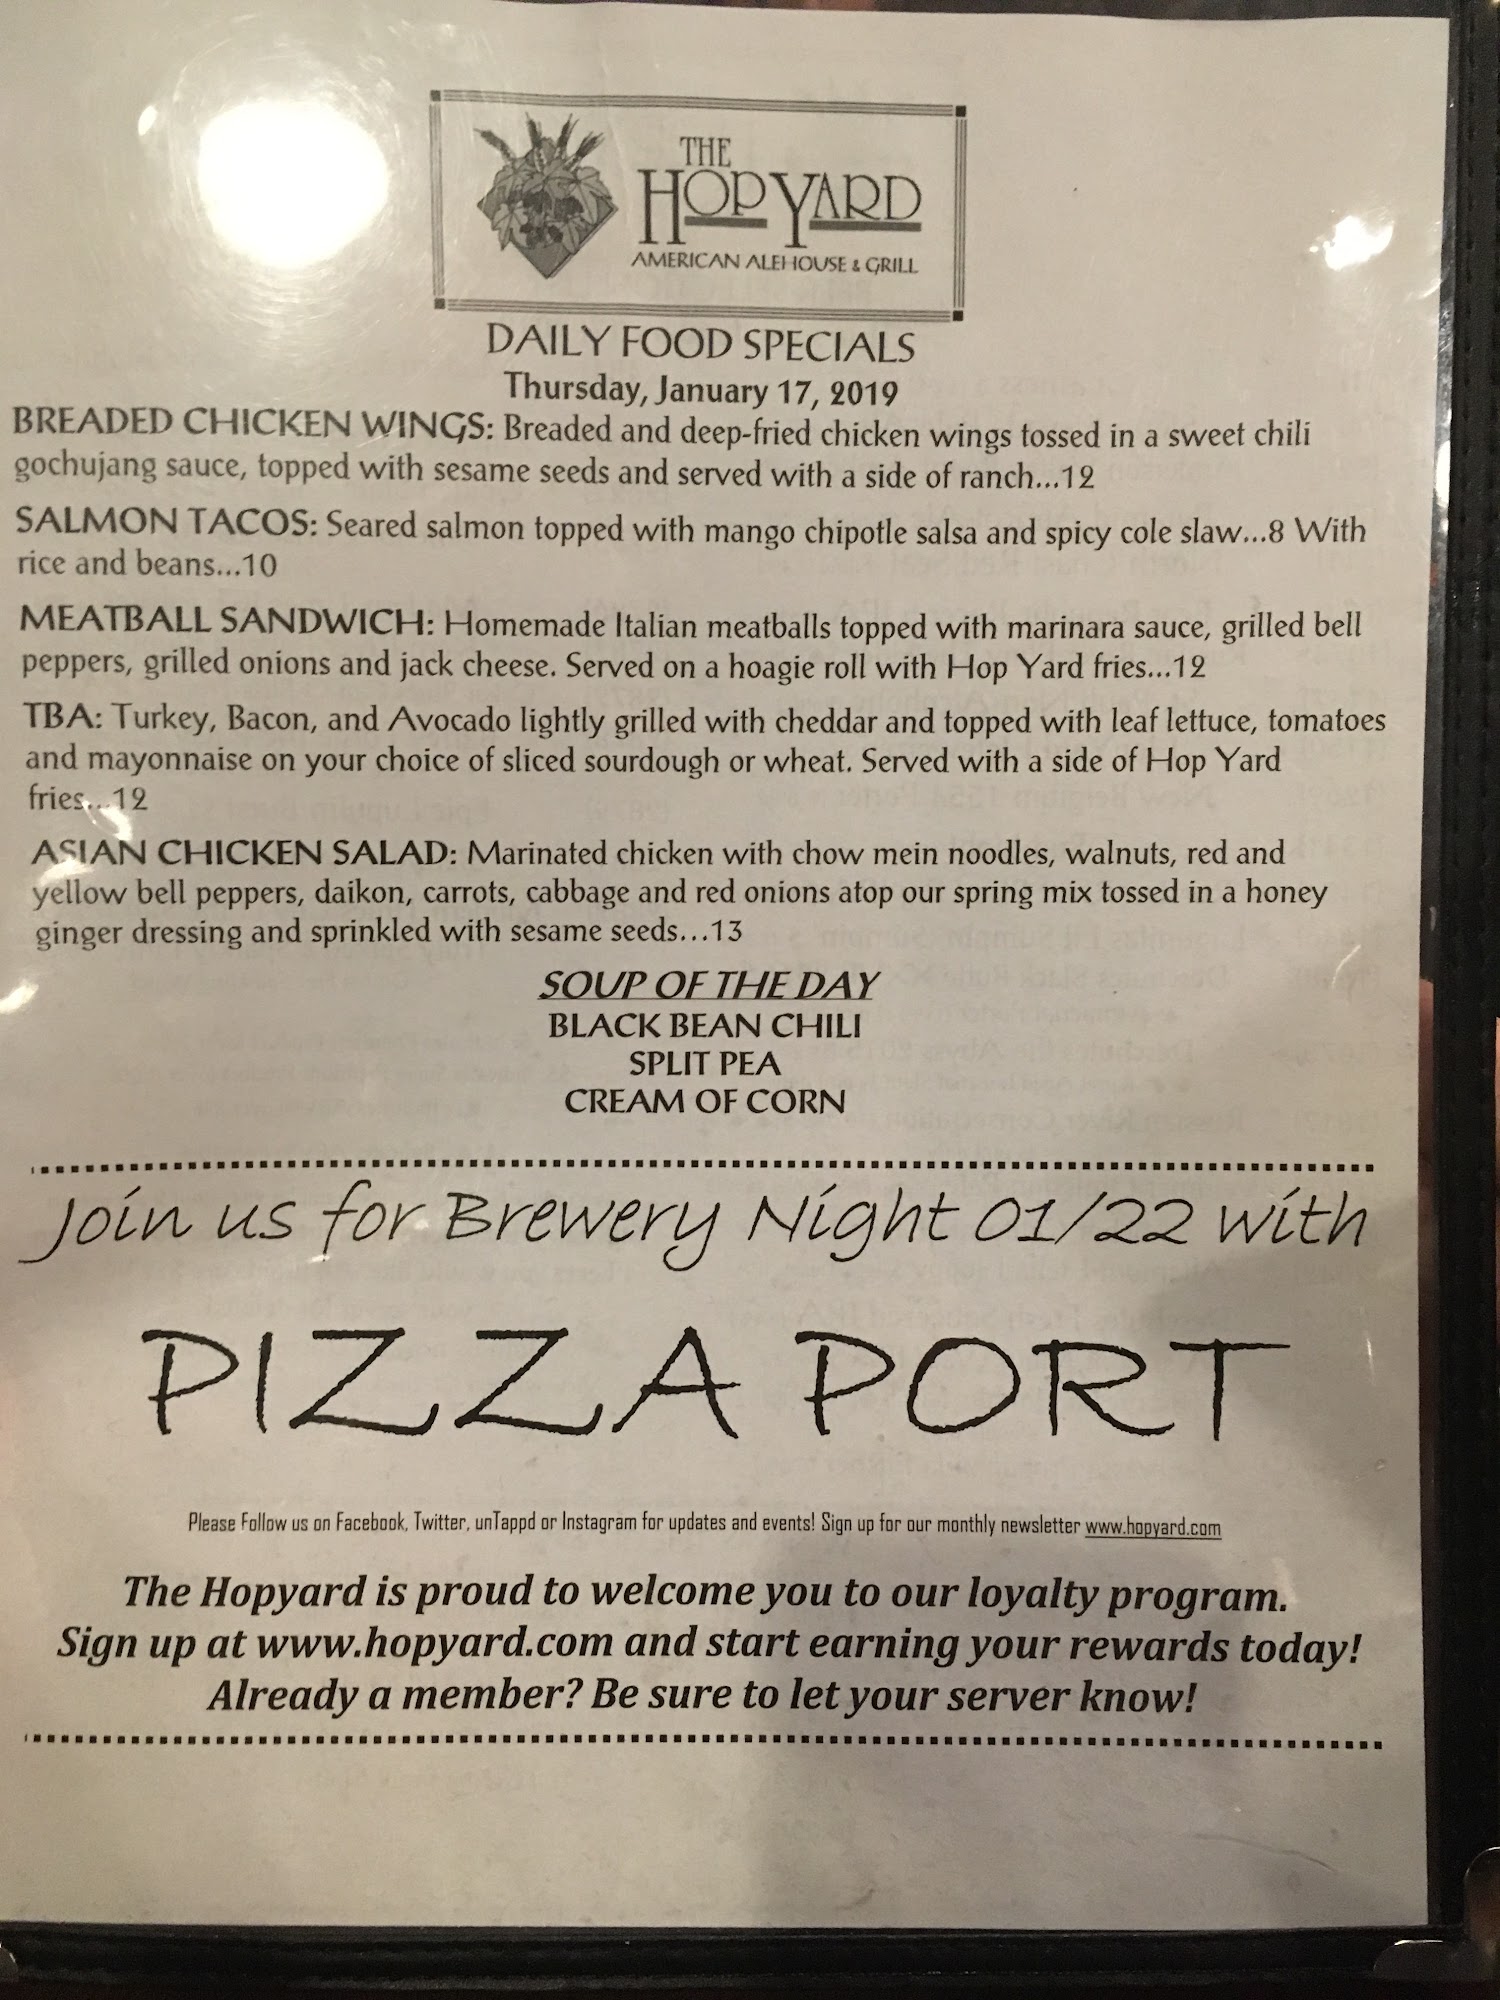 THE
HOP YARD
AMERICAN ALEHOUSE & GRILL
DAILY FOOD SPECIALS
Thursday, January 17, 2019
BREADED CHICKEN WINGS: Breaded and deep-fried chicken wings tossed in a sweet chili
gochujang sauce, topped with sesame seeds and served with a side of ranch...12
SALMON TACOS: Seared salmon topped with mango chipotle salsa and spicy cole slaw...8 With
rice and beans...10
MEATBALL SANDWICH: Homemade Italian meatballs topped with marinara sauce, grilled bell
peppers, grilled onions and jack cheese. Served on a hoagie roll with Hop Yard fries...12
TBA: Turkey, Bacon, and Avocado lightly grilled with cheddar and topped with leaf lettuce, tomatoes
and mayonnaise on your choice of sliced sourdough or wheat. Served with a side of Hop Yard
fries...12
ASIAN CHICKEN SALAD: Marinated chicken with chow mein noodles, walnuts, red and
yellow bell peppers, daikon, carrots, cabbage and red onions atop our spring mix tossed in a honey
ginger dressing and sprinkled with sesame seeds...13
SOUP OF THE DAY
BLACK BEAN CHILI
SPLIT PEA
CREAM OF CORN
Join us for Brewery Night 01/22 with
PIZZA PORT
Please Follow us on Facebook, Twitter, unTappd or Instagram for updates and events! Sign up for our monthly newsletter www.hopyard.com
The Hopyard is proud to welcome you to our loyalty program.
Sign up at www.hopyard.com and start earning your rewards today!
Already a member? Be sure to let your server know!